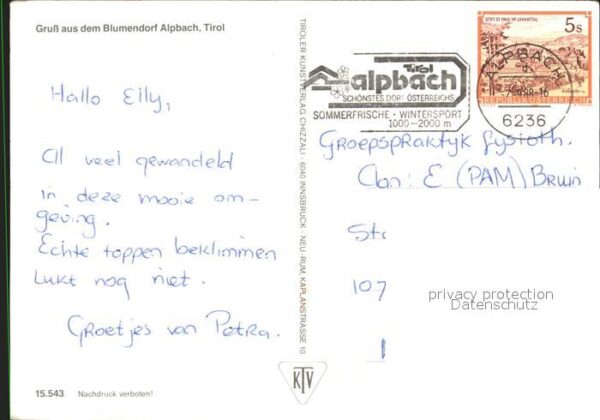 Gruß aus dem Blumendorf Alpbach, Tirol
Hallo Eilly,
Al veel gewandeld
in deze mooie om-
geving.
Echte toppen beklimmen
lukt nog niet.
Groetjes van Petra.
15.543 Nachdruck verboten!
TIROLER KUNSTVERLAG CHIZZALI · 6040 INNSBRUCK - NEU-RUM, KAPLANSTRASSE 10
KTV
Tirol
alpbach
SCHÖNSTES DORF ÖSTERREICHS
SOMMERFRISCHE · WINTERSPORT
1000-2000 m
STIFT ST. PAUL IM LAVANTTAL
5s
REPUBLIK ÖSTERREICH
ALPBACH
6236
Groepspraktyk
E (PAM) Bruin
St.
107
privacy protection
Datenschutz